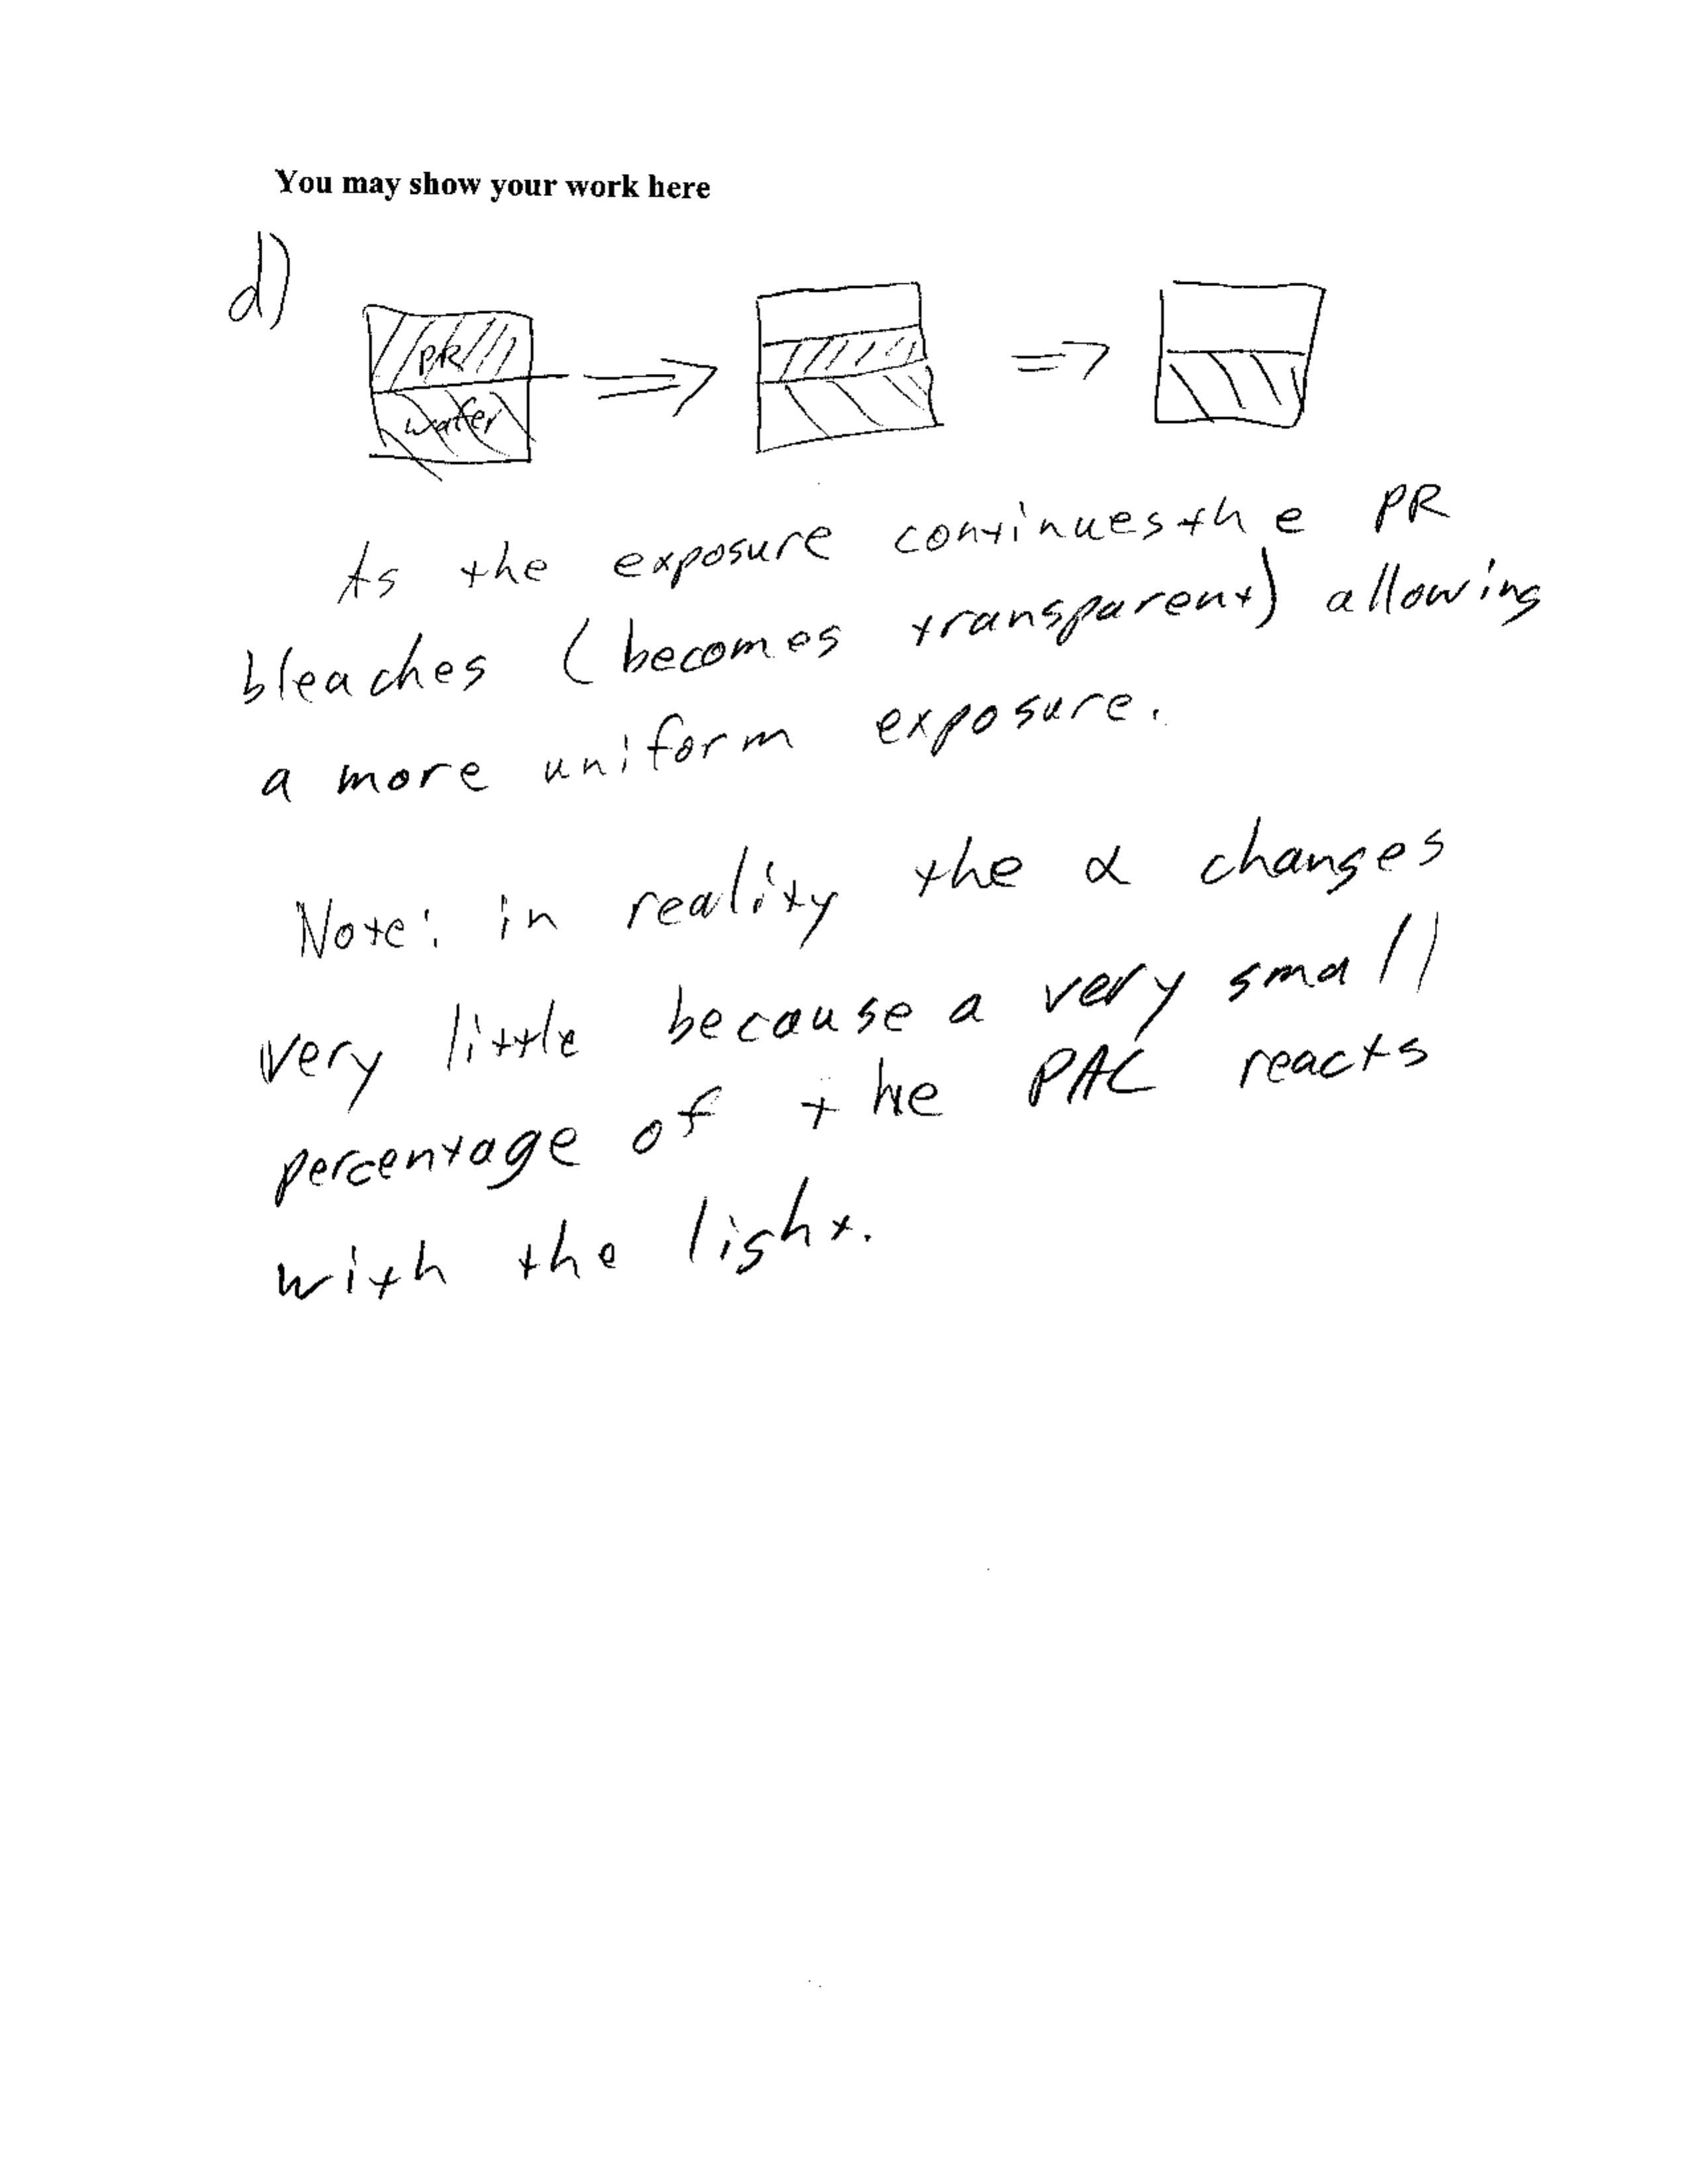 You may show your work here
d)
PR
wafer
As the exposure continues the PR
bleaches (becomes transparent) allowing
a more uniform exposure.
Note: in reality the α changes
very little because a very small
percentage of the PAC reacts
with the light.